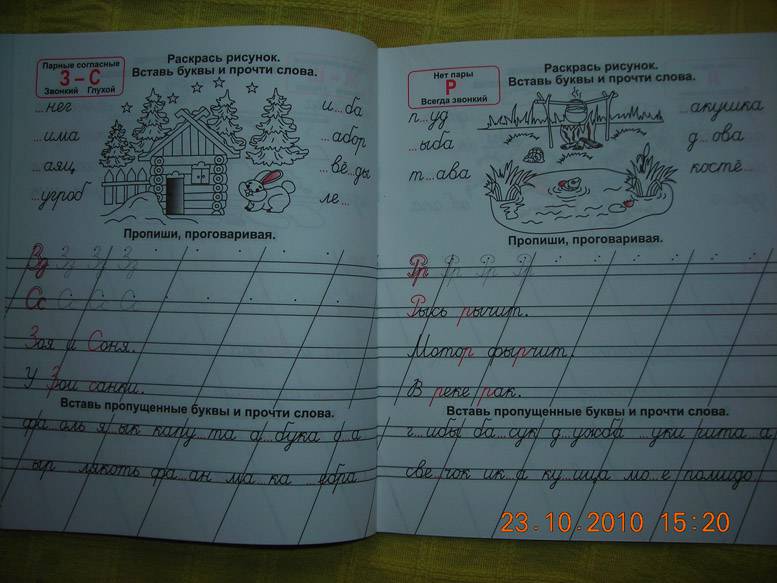 Парные согласные
З – С
Звонкий Глухой
Раскрась рисунок.
Вставь буквы и прочти слова.
...нег
...има
...аяц
...угроб
и...ба
...абор
...вё...ды
ле...
Пропиши, проговаривая.
Зз Зз Зз Зз
Сс С С С
Зоя и Соня.
У Зои санки.
Вставь пропущенные буквы и прочти слова.
фа...оль я...ык капу...та а...бука
...ыр ...лякоть фа...ан ма...ка ...ебра
Нет пары
Р
Всегда звонкий
Раскрась рисунок.
Вставь буквы и прочти слова.
п...уд
...ыба
т...ава
...акушка
д...ова
костё...
Пропиши, проговаривая.
Рр Рр Рр Рр
Рысь рычит.
Мотор фырчит.
В реке рак.
Вставь пропущенные буквы и прочти слова.
г...ибы ба...сук д...ужба ...уки гита...а
све...чок ик...а ку...ица мо...е помидо...
23.10.2010 15:20